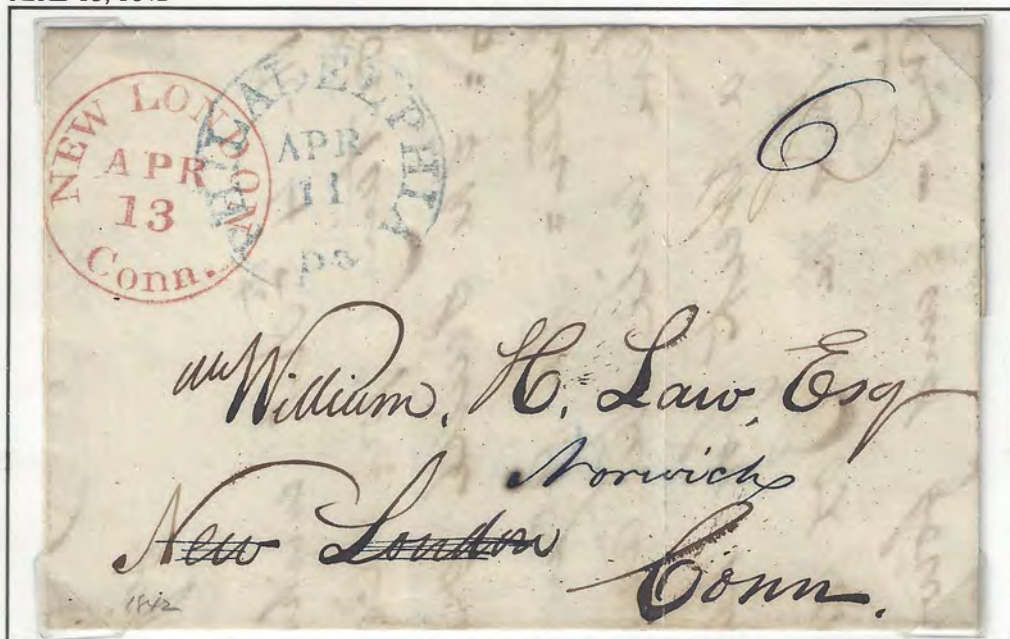 NEW LONDON
APR
13
Conn.
PHILADELPHIA
APR
11
pa
6
William. H. Law, Esq
Norwich
New London
Conn.
1842